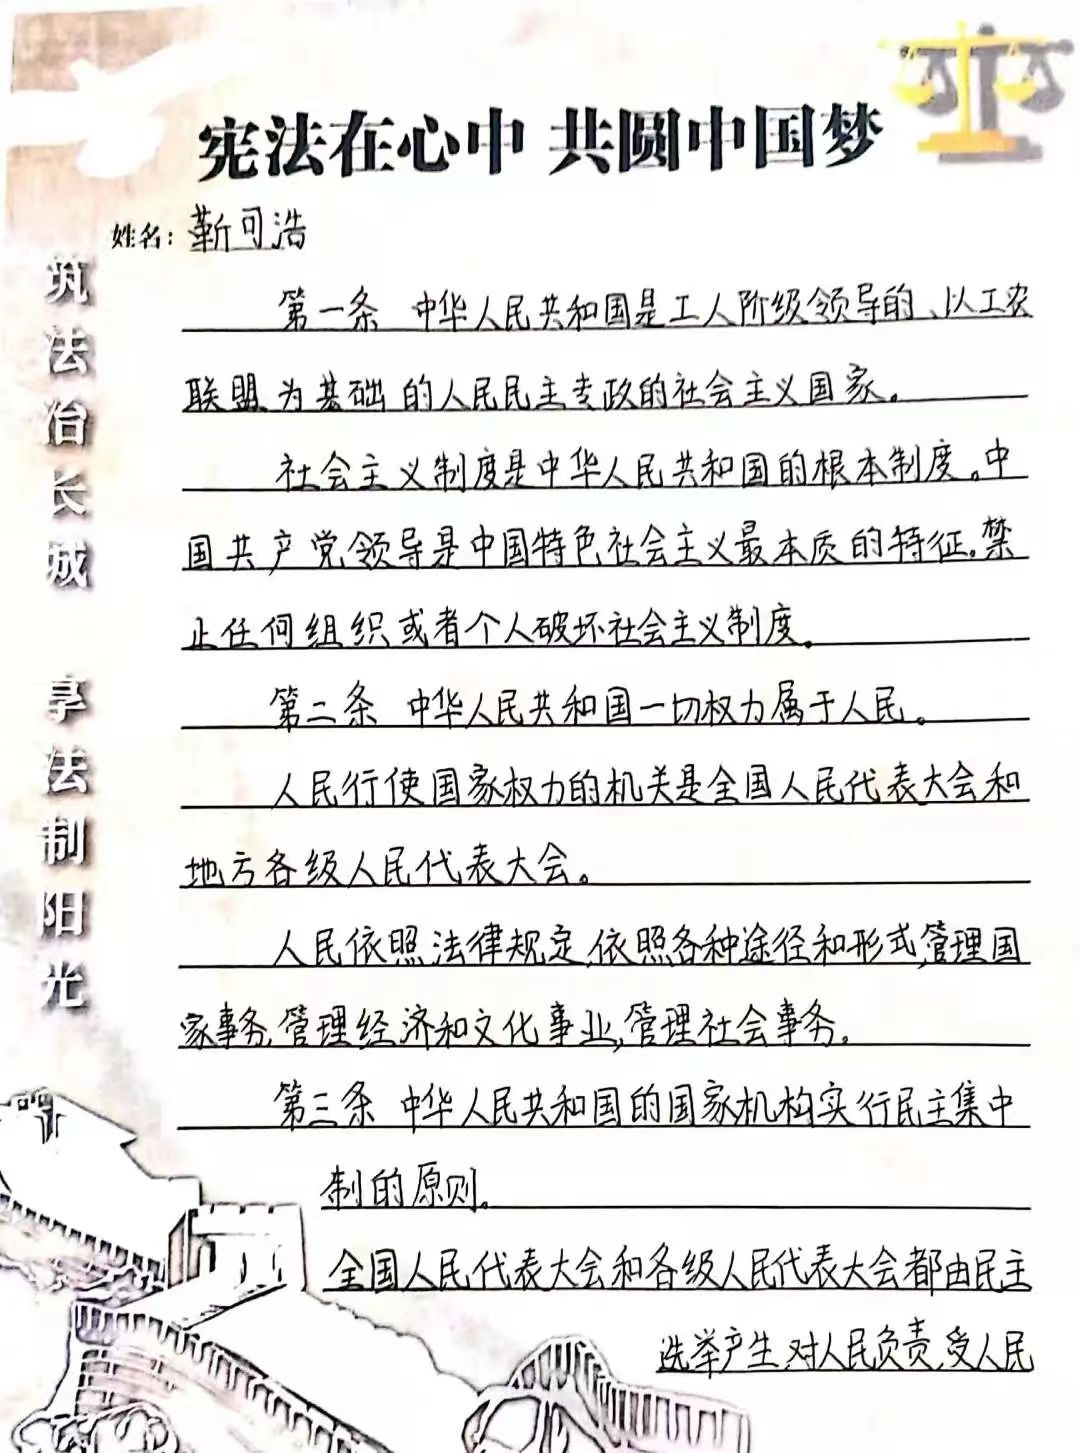 宪法在心中 共圆中国梦
姓名：靳可浩
筑法治长城 享法制阳光
第一条 中华人民共和国是工人阶级领导的、以工农
联盟为基础的人民民主专政的社会主义国家。
社会主义制度是中华人民共和国的根本制度。中
国共产党领导是中国特色社会主义最本质的特征。禁
止任何组织或者个人破坏社会主义制度。
第二条 中华人民共和国一切权力属于人民。
人民行使国家权力的机关是全国人民代表大会和
地方各级人民代表大会。
人民依照法律规定,依照各种途径和形式,管理国
家事务,管理经济和文化事业,管理社会事务。
第三条 中华人民共和国的国家机构实行民主集中
制的原则。
全国人民代表大会和各级人民代表大会都由民主
选举产生,对人民负责,受人民